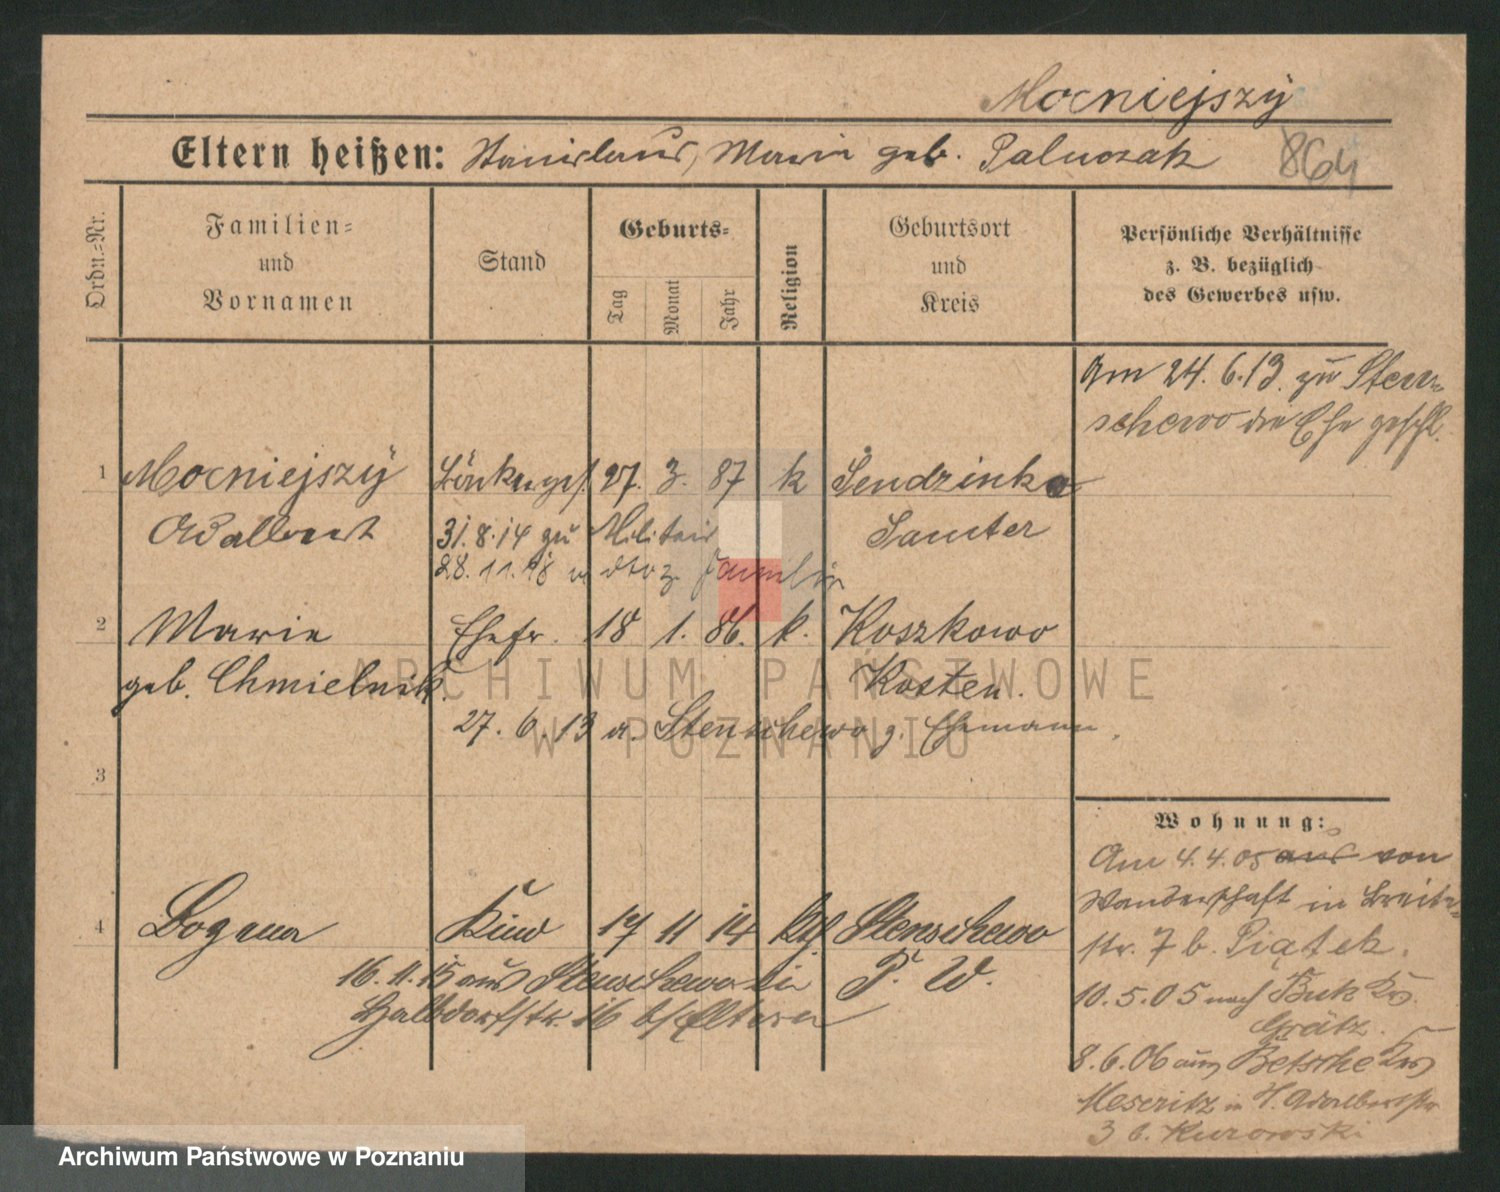 Mocniejszÿ
Eltern heißen: Stanislaus, Maria geb. Paluszak
864
Ordn.=Nr.
Familien=
und
Vornamen
Stand
Geburts=
Tag
Monat
Jahr
Religion
Geburtsort
und
Kreis
Persönliche Verhältnisse
z. B. bezüglich
des Gewerbes usw.
Am 24. 6. 13. zu Sten=
schewo die Ehe geschl.
1 Mocniejszÿ 27. 3. 87 k Sendzinko
Adalbert 31. 8. 14 zu Militair Samter
28. 11. 18 v. dto z. Familie
2 Marie Ehefr. 18 1. 86. k. Koszkowo
geb. Chmielnik. Kosten.
27. 6. 13 a. Stenschewo z. Ehemann.
3
4 Kind 17 11 14 Kth Stenschewo
16. 11. 15 aus Stenschewo in P. W.
Halbdorfstr. 16 b/Eltern
Wohnung:
Am 4. 4. 05 aus von
Wanderschaft in Breite=
str. 7 b. Piątek.
10. 5. 05 nach Buk Krs.
Grätz.
8. 6. 06 aus Betsche Krs
Meseritz in St. Adalbertstr
3 b. Kurowski
ARCHIWUM PAŃSTWOWE
W POZNANIU
Archiwum Państwowe w Poznaniu